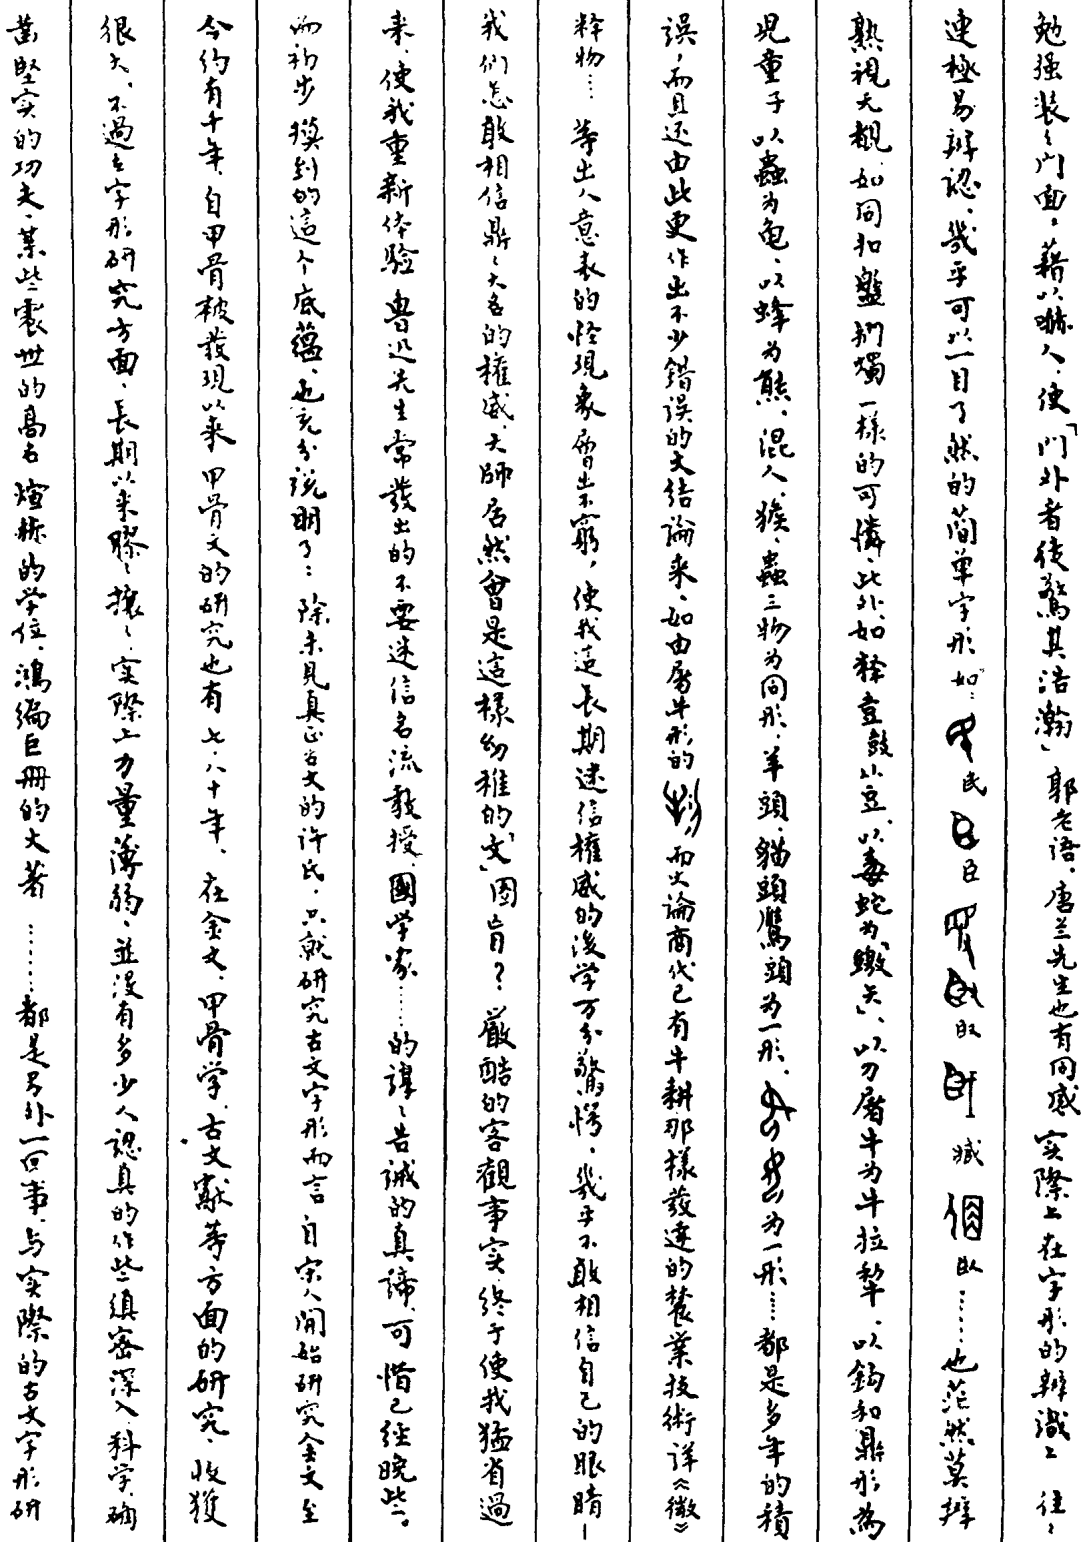 勉强装〻门面，藉以嚇人，使「门外者徒驚其浩瀚」郭老语，唐兰先生也有同感 实際上在字形的辨識上 往〻
連極易辨認、幾乎可以一目了然的简单字形 如：民 臣 臤 臧 臥……也茫然莫辨
熟視无覩，如同扣盤捫燭一樣的可憐，此外，如釋壴鼓以豆、以毒蛇为繳矢、以刀屠牛为牛拉犂，以鈎和鼎形為
児童子 以蟲为龟、以蜂为熊，混人、猴、蟲三物为同形，羊頭、貓頭鷹頭为一形，为一形……都是多年的積
误，而且还由此更作出不少錯误的大结論来，如由屠牛形的 而大論商代已有牛耕那樣發達的農業技術详《徵》
释物…等出人意表的怪現象層出不窮，使我這長期迷信權威的後学万分驚愕，幾乎不敢相信自己的眼睛—
我们怎敢相信鼎〻大名的權威、大師居然會是這樣幼稚的「文」固盲？嚴酷的客觀事实，终于使我猛省過
来，使我重新体驗 鲁迅先生常發出的不要迷信名流、教授、國学家……的諄〻告誡的真諦，可惜已经晚些。
而初步摸到的這个底蕴，也充分说明了：除未見真正古文的许氏，只就研究古文字形而言 自宋人開始研究金文至
今约有千年，自甲骨被發現以来 甲骨文的研究也有七、八十年，在金文、甲骨学、古文獻等方面的研究，收獲
很大，不過在字形研究方面，長期以来膠〻擾〻，实際上力量薄弱，並没有多少人認真的作些缜密深入、科学、确
當堅实的功夫，某些震世的高名 煊赫的学位、鴻编巨冊的大著………都是另外一回事，与实際的古文字形研